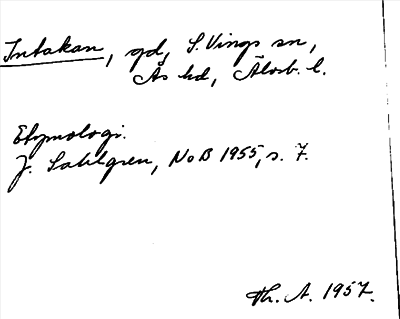 Intakan, gd, S. Vings sn,
Ås hd, Älvsb. l.
Etymologi.
J. Sahlgren, NoB 1955, s. 7.
Th. A. 1957.